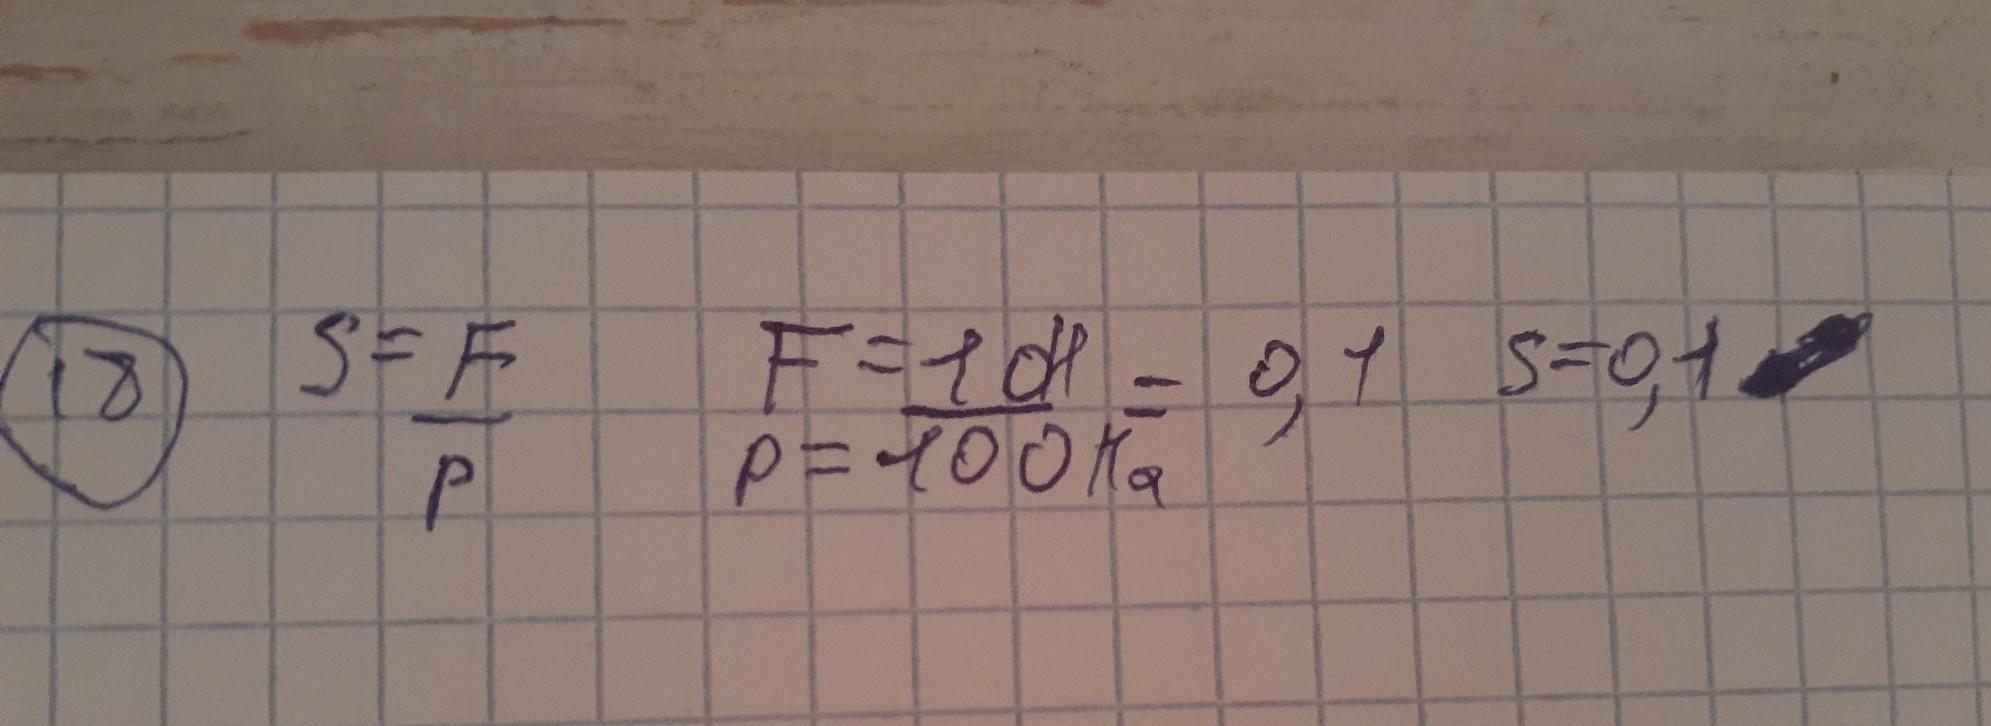 18 S = F/p F = 1 Н / p = 100 Па = 0,1 S = 0,1